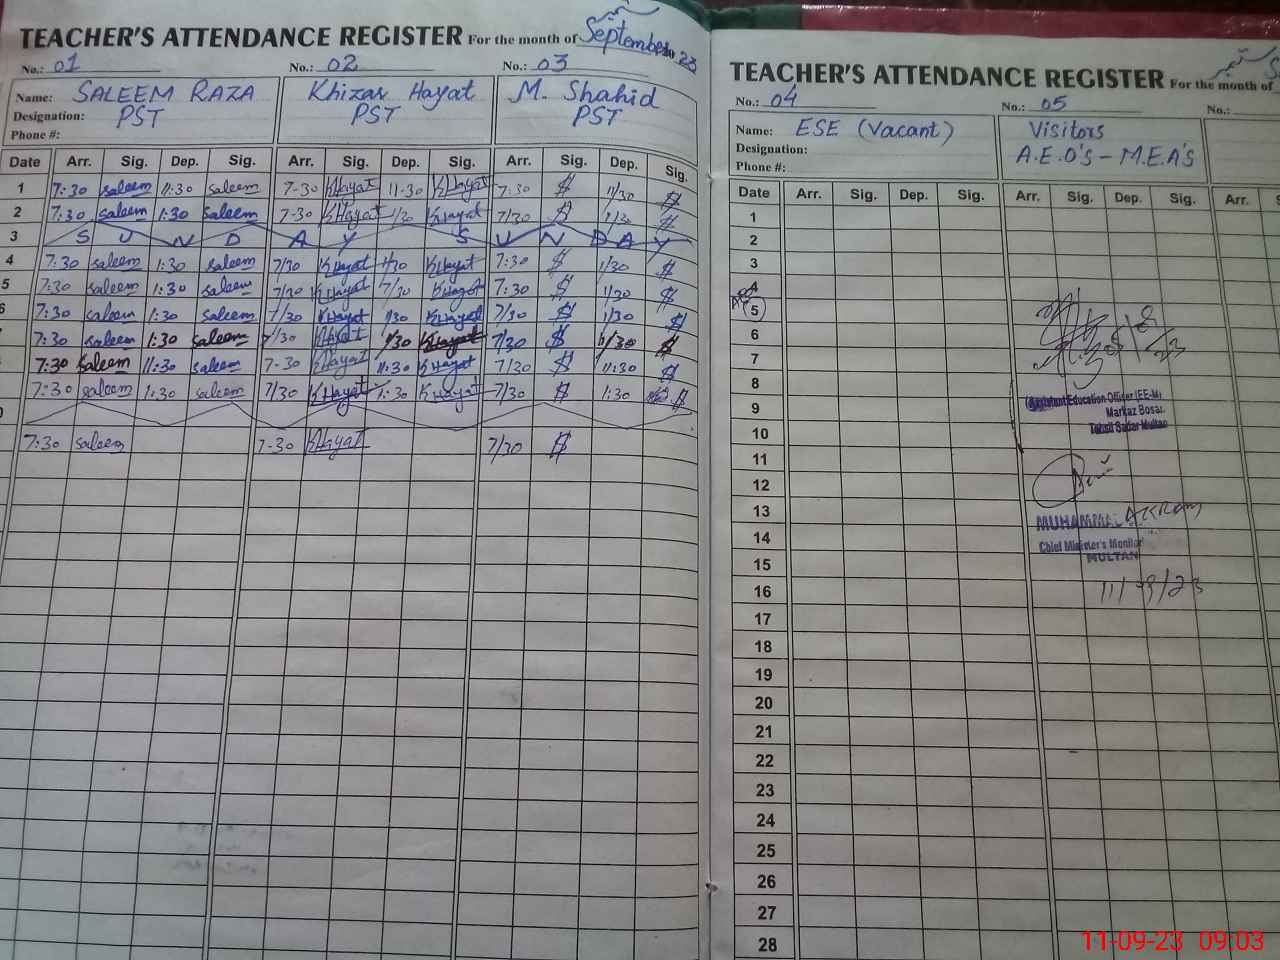 TEACHER'S ATTENDANCE REGISTER For the month of September 23
No.: 01 No.: 02 No.: 03
Name: SALEEM RAZA Khizar Hayat M. Shahid
Designation: PST PST PST
Phone #:
Date Arr. Sig. Dep. Sig. Arr. Sig. Dep. Sig. Arr. Sig. Dep. Sig.
1 7:30 saleem 11:30 saleem 7-30 KHayat 11-30 KHayat 7:30 11/30
2 7:30 saleem 1:30 saleem 7-30 KHayat 1/30 KHayat 7/30 1/30
3 S U N D A Y S U N D A Y
4 7:30 saleem 1:30 saleem 7/30 KHayat 1/30 KHayat 7:30 1/30
5 7:30 saleem 1:30 saleem 7/30 KHayat 1/30 KHayat 7:30 1/30
6 7:30 saleem 1:30 saleem 7/30 KHayat 1/30 KHayat 7/30 1/30
7:30 saleem 1:30 saleem 7/30 KHayat 1/30 KHayat 7/30 1/30
7:30 saleem 11:30 saleem 7-30 KHayat 11:30 KHayat 7/30 11:30
7:30 saleem 1:30 saleem 7/30 KHayat 1:30 KHayat 7/30 1:30
7:30 saleem 7-30 KHayat 7/30
TEACHER'S ATTENDANCE REGISTER For the month of
No.: 04 No.: 05 No.:
Name: ESE (Vacant) Visitors
Designation: A.E.O'S - M.E.A'S
Phone #:
Date Arr. Sig. Dep. Sig. Arr. Sig. Dep. Sig. Arr.
1
2
3
4
5
6
7
8
9
10
11
12
13
14
15
16
17
18
19
20
21
22
23
24
25
26
27
28
Assistant Education Officer (EE-M)
Markaz Bosan
Tehsil Sadar Multan
MUHAMMAD AKRAM
Chief Minister's Monitor
MULTAN
11/09/23
11-09-23 09:03